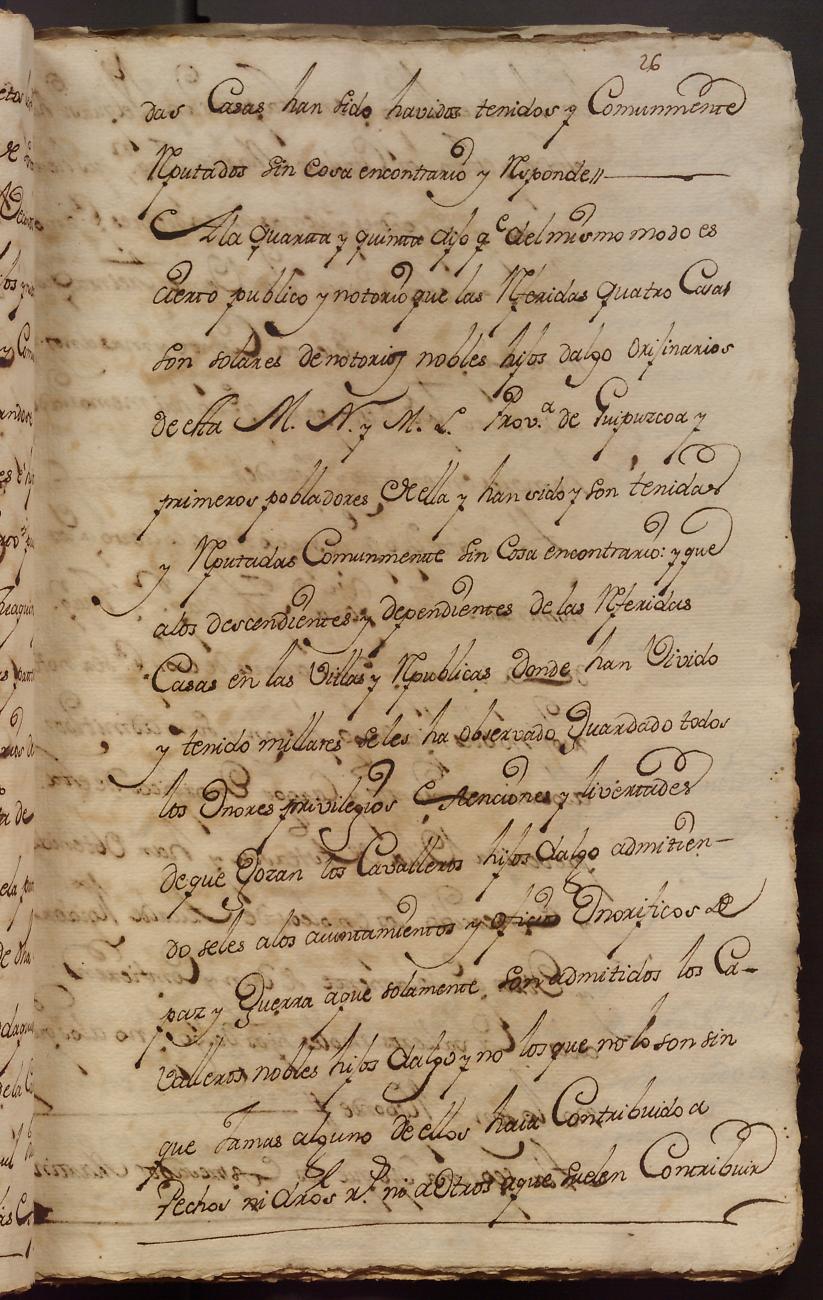 26
das Casas han sido havidos tenidos y Comunmente
Rputados sin cosa encontrario y Rsponde//
A la quarta y quinta dijo q.e del mismo modo es
cierto publico y notorio que las Rferidas quatro Casas
son solares de notorios nobles hijos dalgo Orijinarios
de esta M. N. y M. L. Prov.a de Guipuzcoa y
primeros pobladores de ella y han sido y son tenidas
y Rputadas Comunmente sin Cosa encontrario: y que
a los descendientes y dependientes de las Rferidas
Casas en las Villas y Rpublicas donde han Vivido
y tenido millares seles ha observado Guardado todos
los Onores privilegios Esenciones y livertades
de que Gozan los Cavalleros hijos dalgo admitien-
do seles a los aiuntamientos y oficios Onorificos de
paz y Guerra aque solamente son admitidos los Ca-
valleros nobles hijos dalgo y no los que no lo son sin
que Jamas alguno de ellos haia Contribuido a
Pechos ni dros r.s ni a Otros aque suelen Contribuir